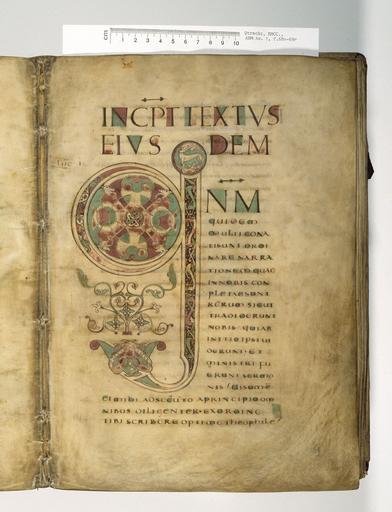 cm 1 2 3 4 5 6 7 8 9 10
Utrecht, RMCC,
INCPT TEXTVS
EIVS DEM
Q NM
QUIDEM
MULTI CONA
TI SUNT ORDI
NARE NARRA
TIONEM QUAE
IN NOBIS CON
PLETAE SUNT
RERUM SICUT
TRADIDERUNT
NOBIS QUI AB
INITIO IPSI UI
DERUNT ET
MINISTRI FU
ERUNT SERMO
NIS UISUM E
ET MIHI ADSECUTO A PRINCIPIO OM
NIBUS DILIGENTER EX ORDINE
TIBI SCRIBERE OPTIME THEOPHILE